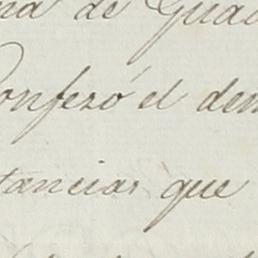 na de Guad
Confesó el dem
tancias que